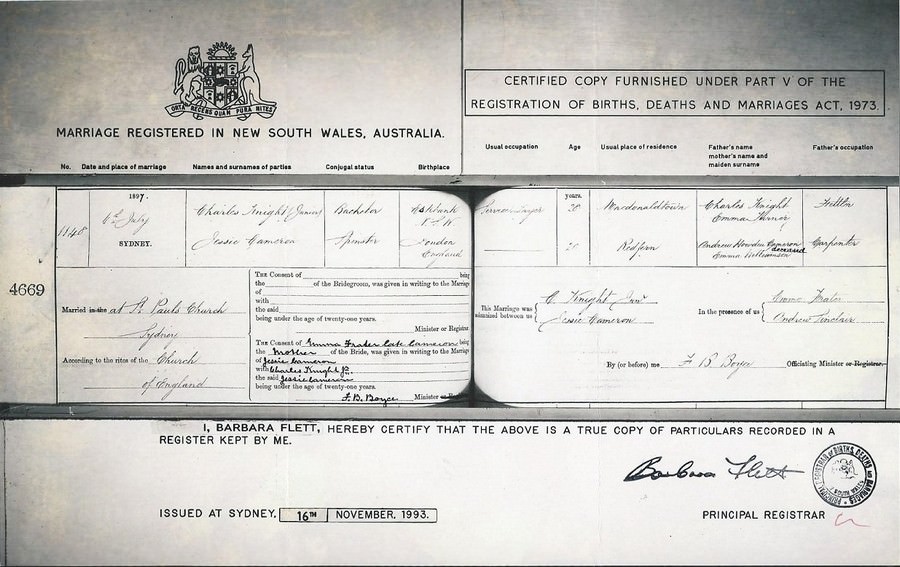 ORTA RECENS QUAM PURA NITES
MARRIAGE REGISTERED IN NEW SOUTH WALES, AUSTRALIA.
CERTIFIED COPY FURNISHED UNDER PART V OF THE
REGISTRATION OF BIRTHS, DEATHS AND MARRIAGES ACT, 1973.
No. Date and place of marriage Names and surnames of parties Conjugal status Birthplace
Usual occupation Age Usual place of residence Father's name
mother's name and
maiden surname Father's occupation
1897.
years.
6th July Charles Knight (Junior) Bachelor N.S.W. 20 Macdonaldtown Charles Knight
Emma
1148 SYDNEY. Jessie Cameron Spinster London
England
20 Redfern Andrew Howden Cameron
deceased
Emma Williamson Carpenter
4669
Married in the at St. Pauls Church
Sydney
According to the rites of the Church
of England
THE Consent of being
the of the Bridegroom, was given in writing to the Marriage
of
with
the said
being under the age of twenty-one years.
Minister or Registrar
THE Consent of Emma Frater late Cameron being
the Mother of the Bride, was given in writing to the Marriage
of Jessie Cameron
with Charles Knight Jr.
the said Jessie Cameron
being under the age of twenty-one years.
F.B. Boyce Minister or
This Marriage was
solemnized between us
C. Knight Junr
Jessie Cameron
In the presence of us
Emma Frater
Andrew Sinclair
By (or before) me F B Boyce Officiating Minister or Registrar.
I, BARBARA FLETT, HEREBY CERTIFY THAT THE ABOVE IS A TRUE COPY OF PARTICULARS RECORDED IN A
REGISTER KEPT BY ME.
Barbara Flett
ISSUED AT SYDNEY, 16TH NOVEMBER, 1993.
PRINCIPAL REGISTRAR
PRINCIPAL REGISTRAR OF BIRTHS, DEATHS AND MARRIAGES